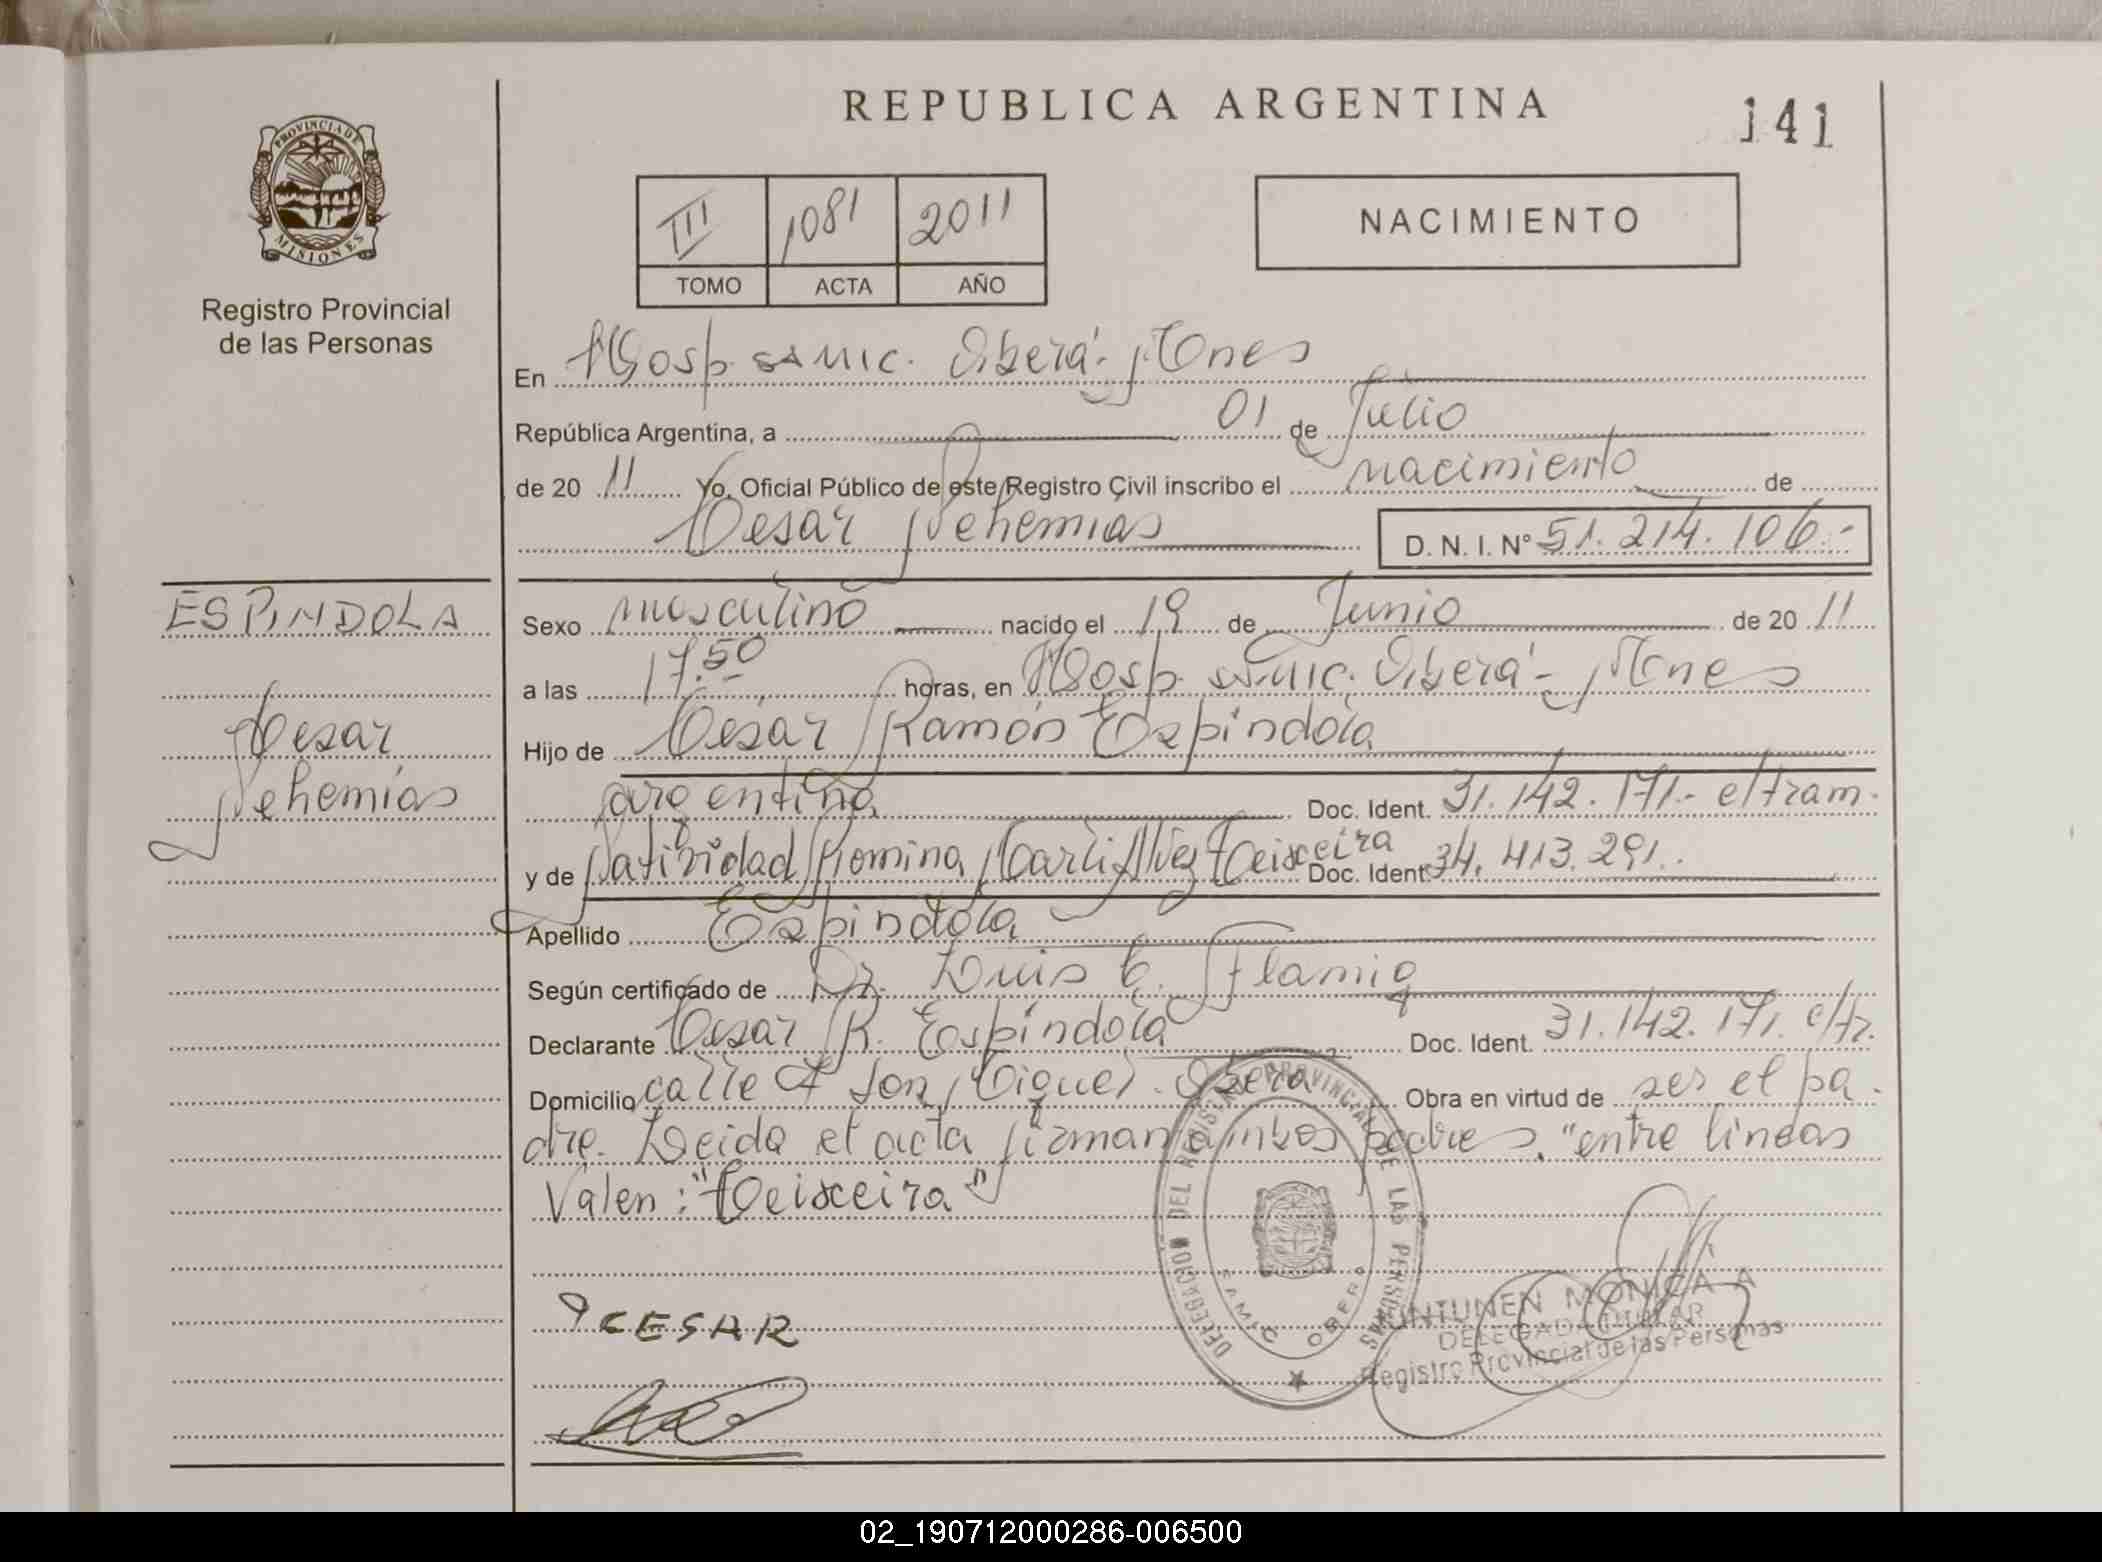 REPUBLICA ARGENTINA
141
PROVINCIA DE
MISIONES
Registro Provincial
de las Personas
III 1081 2011
TOMO ACTA AÑO
NACIMIENTO
En Hosp. samic. Oberá - Mnes
República Argentina, a 01 de Julio
de 20 11 Yo, Oficial Público de este Registro Civil inscribo el nacimiento de
Cesar Nehemias D. N. I. N° 51.214.106.-
ESPINDOLA
Cesar
Nehemías
Sexo masculino nacido el 19 de Junio de 20 11
a las 17.50 horas, en Hosp. samic. Oberá - Mnes
Hijo de César Ramón Espíndola
argentina Doc. Ident. 31.142.171.- e/tram.
y de Natividad Romina Marli Alvez Teixeira Doc. Ident. 34.413.291.
Apellido Espíndola
Según certificado de Dr. Luis C. Flamig
Declarante Cesar R. Espíndola Doc. Ident. 31.142.171. e/tr.
Domicilio calle A San Miguel. Obera Obra en virtud de ser el pa-
dre. Leida el acta firman ambos padres. "entre lineas
Valen: "Teixeira"
DELEGACION DEL REGISTRO PROVINCIAL DE LAS PERSONAS
SAMIC OBERA
CESAR
MONICA A
DELEGADA TITULAR
Registro Provincial de las Personas
02_190712000286-006500